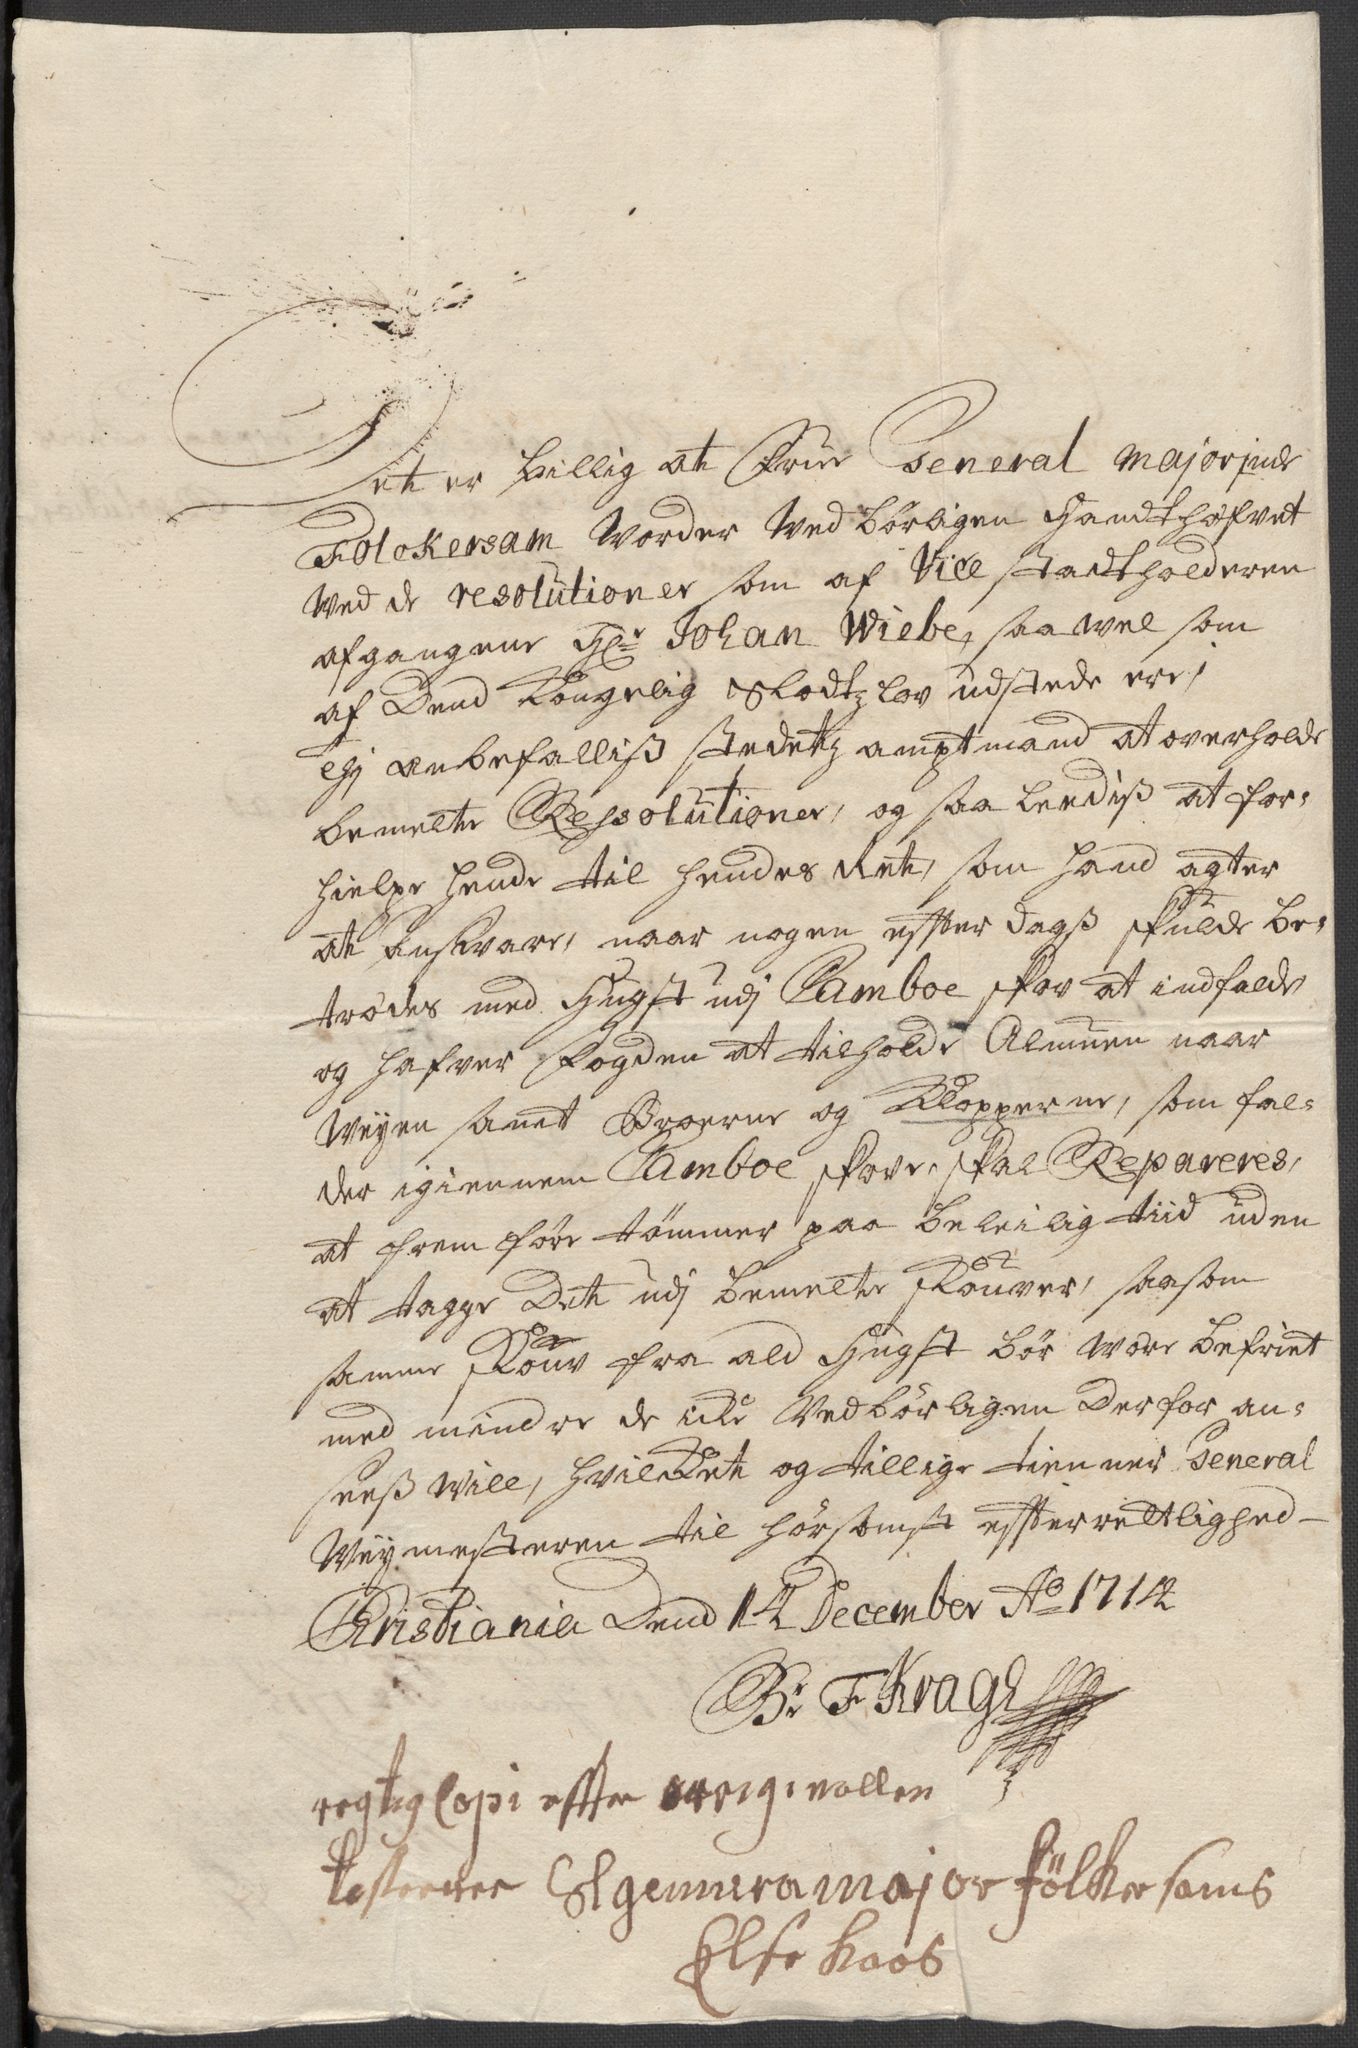 Det er billig at Frue General majorinde
Folckersam worder wed börligen Handthæfvet
wed de resolutioner som af Vice stadtholderen
afgangene Hr Johan Wiebe, saa wel som
af Dend Kongelig Slodtzlov udstede ere,
thj anbefalliss stedetz amptmand at overholde
bemelte Ressolutioner, og saaledis at for-
hielpe hende til hendes Ret, som hand agter
at ansvare, naar nogen effter dags skulde be-
trædes med Hugst udj Camboe skov at indfalde
og hafver fogden at tilholde Almuen naar
weyen samt Broerne og Klopperne, som fal-
der igiennem Camboe skove, skal Repareres,
at frem före tömmer paa beleilig tiid uden
at tagge Det udj bemelte skouver, saasom
samme skouv fra ald Hugst bör were befriet
med mindre de icke wedbörligen Derfor an-
sees will, hvilcket og tillige tienner General
weymesteren til hörsomst effterrettlighed
Christiania Dend 14 December Ao 1714
Br F Kragh
regtig Copi effter orriginallen
testerer Sl genneramajor fölkersams
Else Kaas